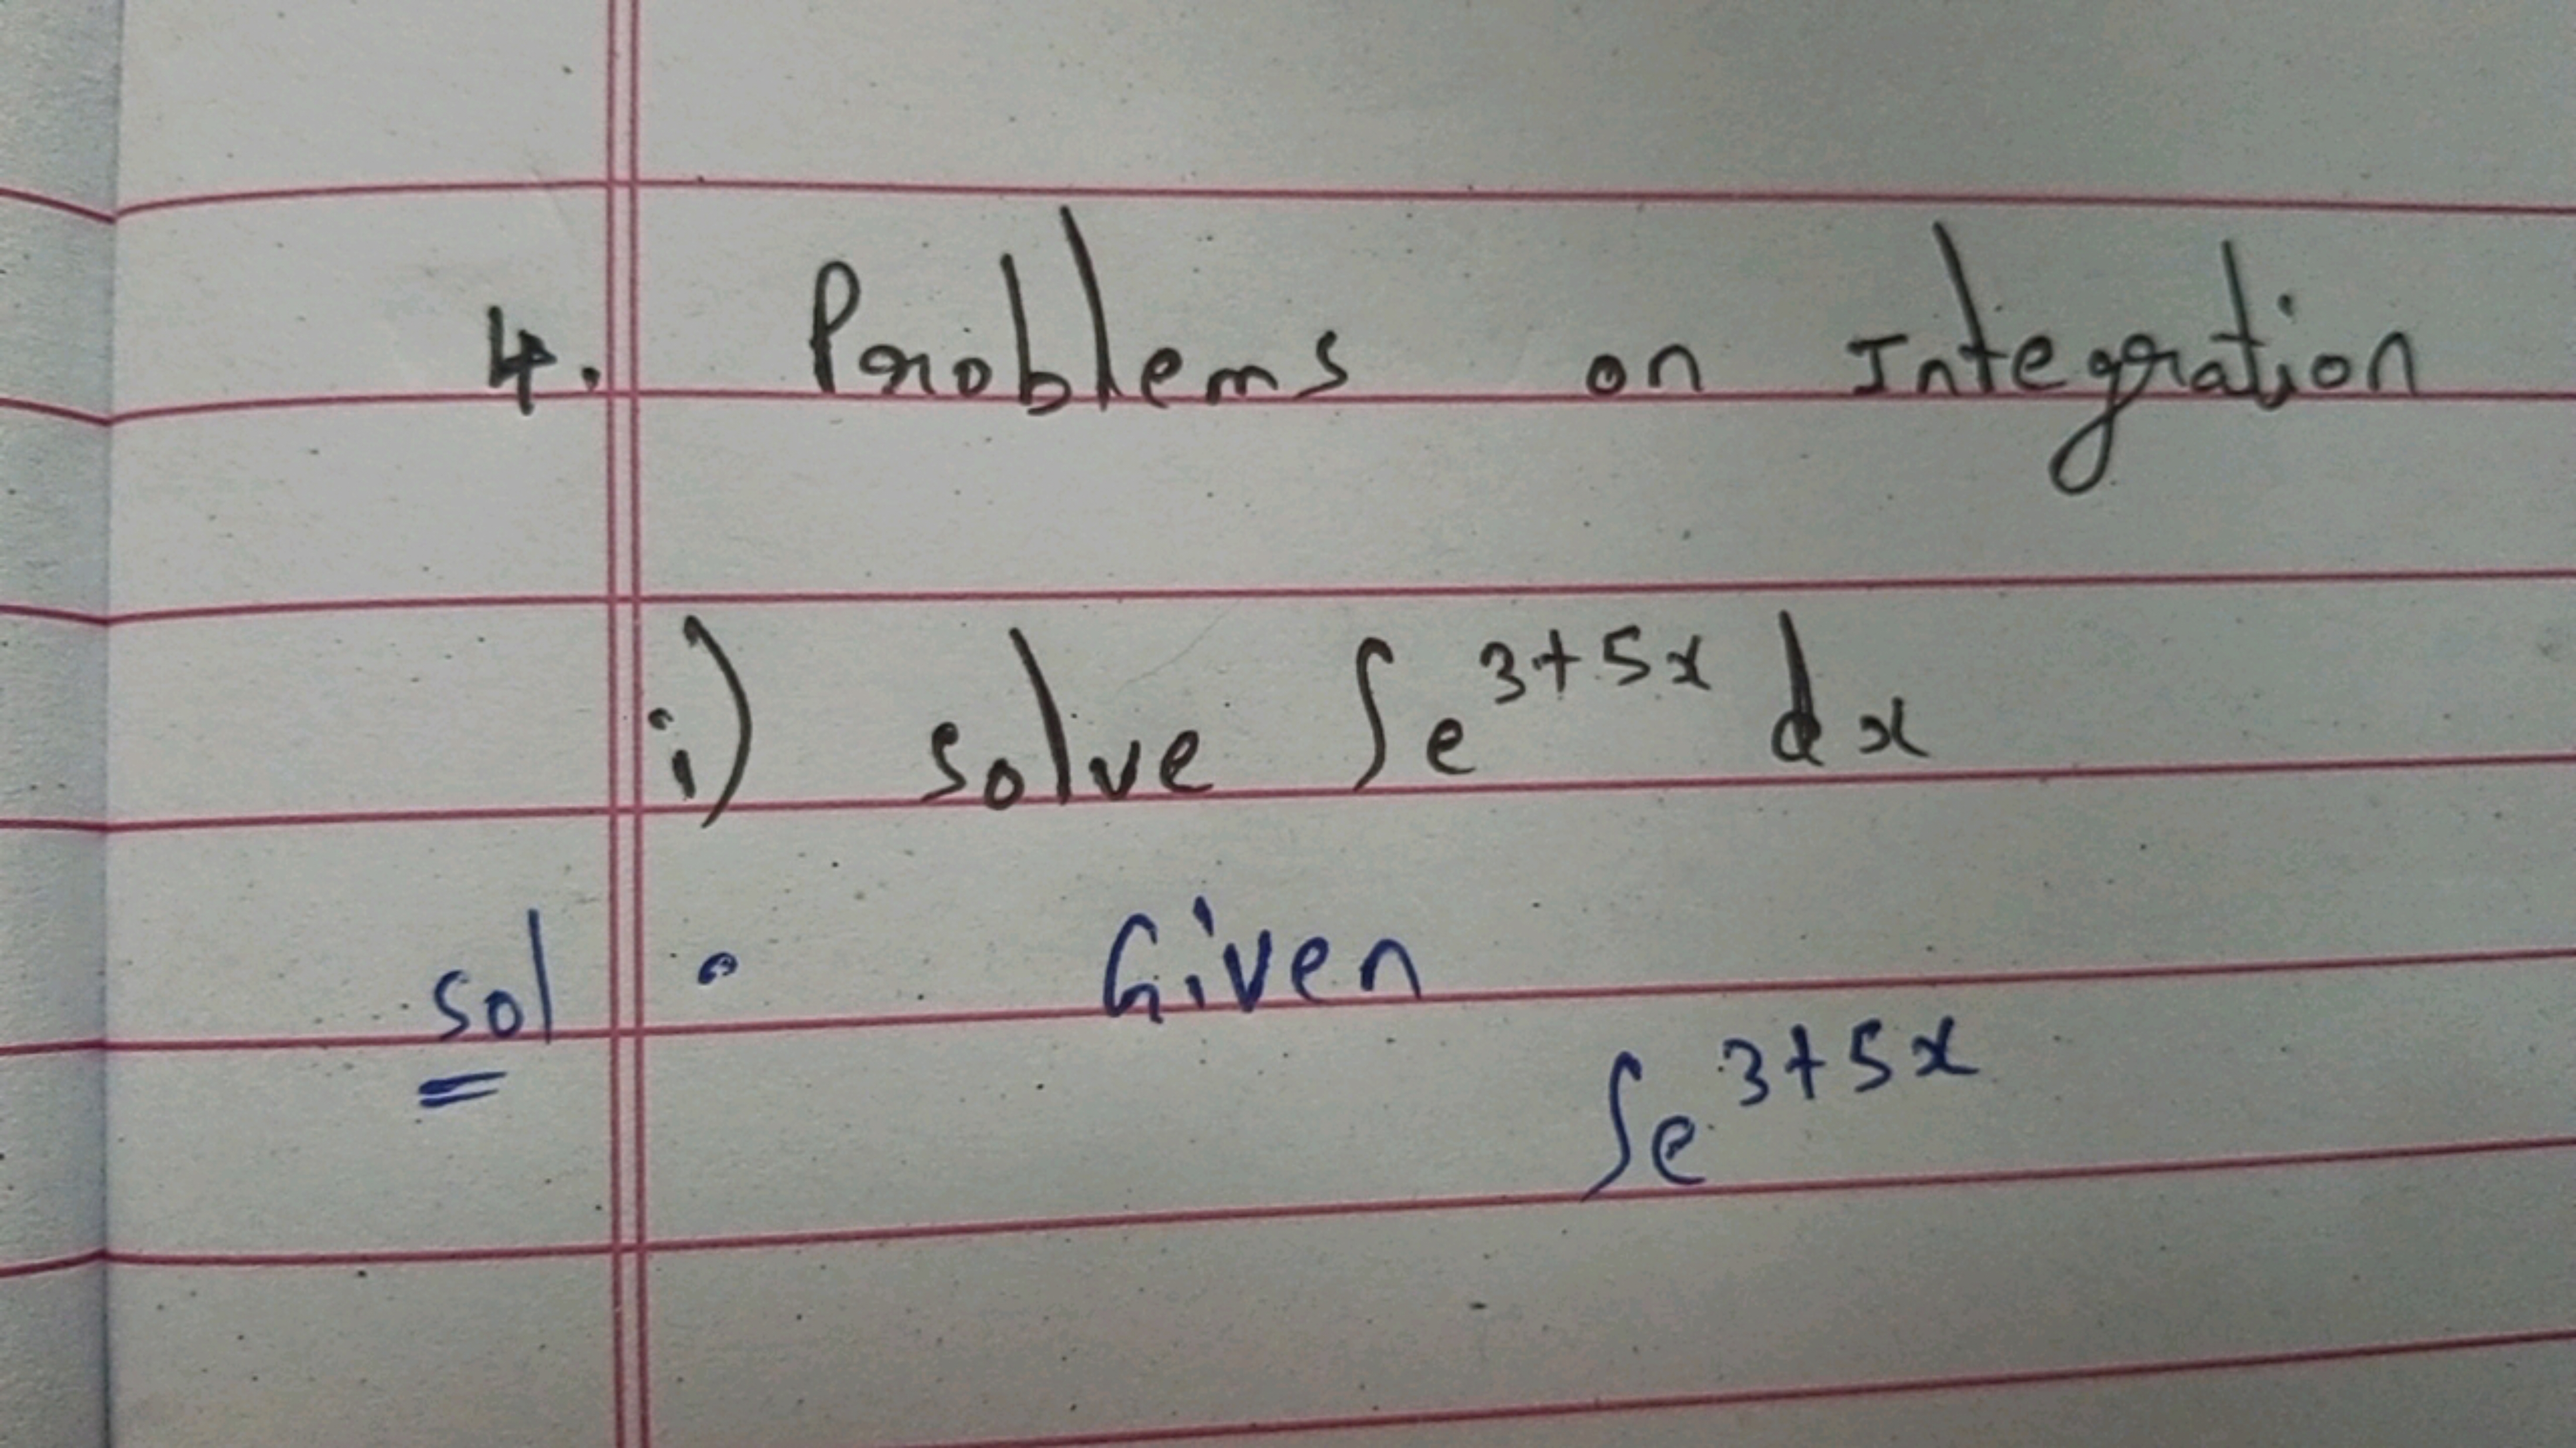 4. Problems on Integration
i) solve ∫e^{3+5x} dx
sol: Given
∫e^{3+5x}